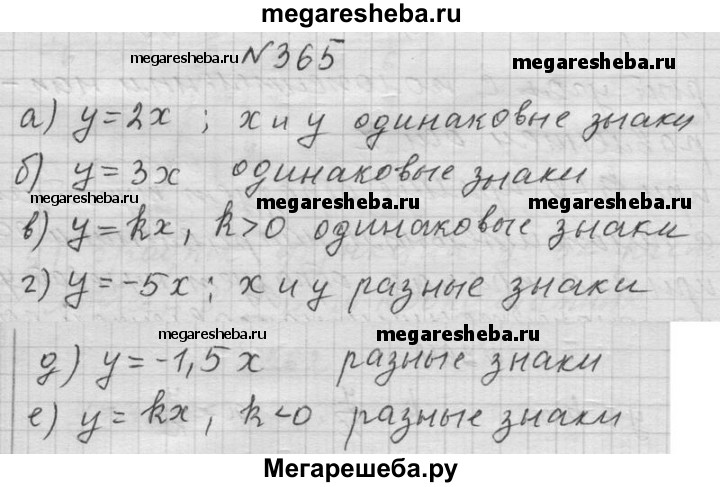 megaresheba.ru
megaresheba.ru №365 megaresheba.ru
а) y=2x ; x и y одинаковые знаки
б) y=3x одинаковые знаки
megaresheba.ru megaresheba.ru megaresheba.ru
в) y=kx, k>0 одинаковые знаки
г) y=-5x ; x и y разные знаки
megaresheba.ru megaresheba.ru
д) y=-1,5x разные знаки
е) y=kx, k<0 разные знаки
Мегарешеба.ру